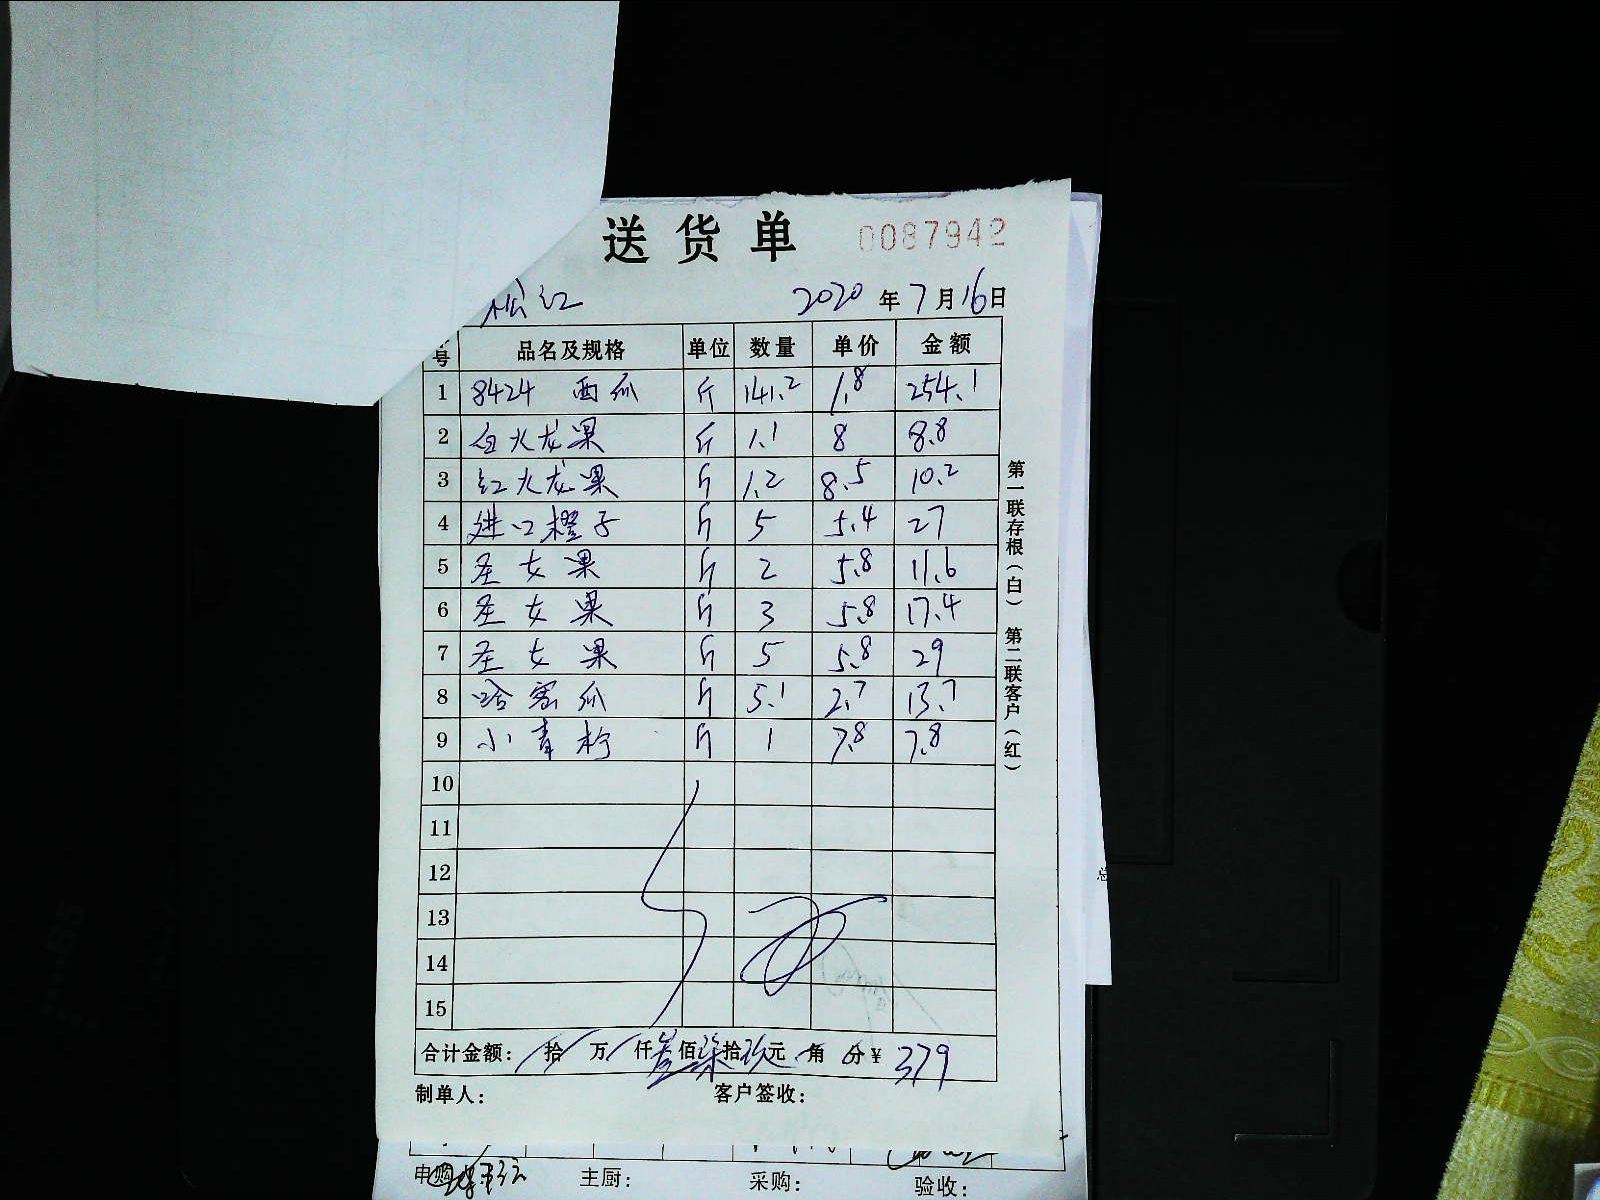 送货单 0087942
松江 2020年7月16日
号 品名及规格 单位 数量 单价 金额
1 8424 西瓜 斤 141.2 1.8 254.1
2 白火龙果 斤 1.1 8 8.8
3 红火龙果 斤 1.2 8.5 10.2
4 进口橙子 斤 5 5.4 27
5 圣女果 斤 2 5.8 11.6
6 圣女果 斤 3 5.8 17.4
7 圣女果 斤 5 5.8 29
8 哈密瓜 斤 5.1 2.7 13.7
9 小青柠 斤 1 7.8 7.8
10
11
12
13
14
15
合计金额： 拾 万 仟叁佰柒拾玖元 角 分￥ 379
制单人： 客户签收：
第一联存根（白） 第二联客户（红）
申购 主厨： 采购： 验收：